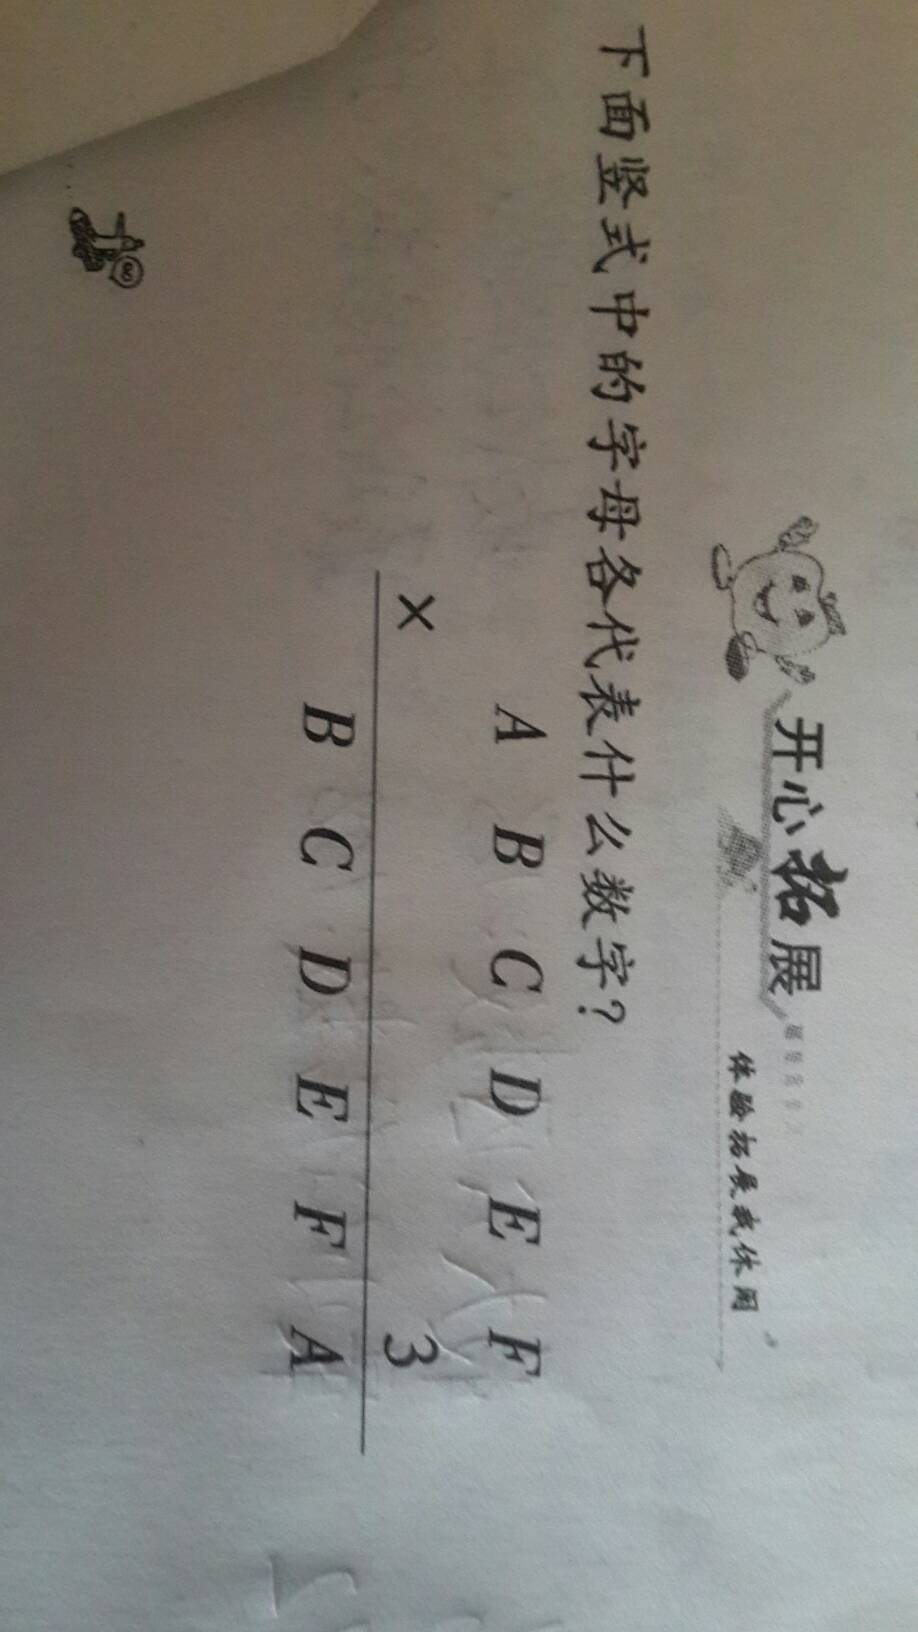 开心拓展
体验拓展或休闲
下面竖式中的字母各代表什么数字?
A B C D E F
× 3
B C D E F A